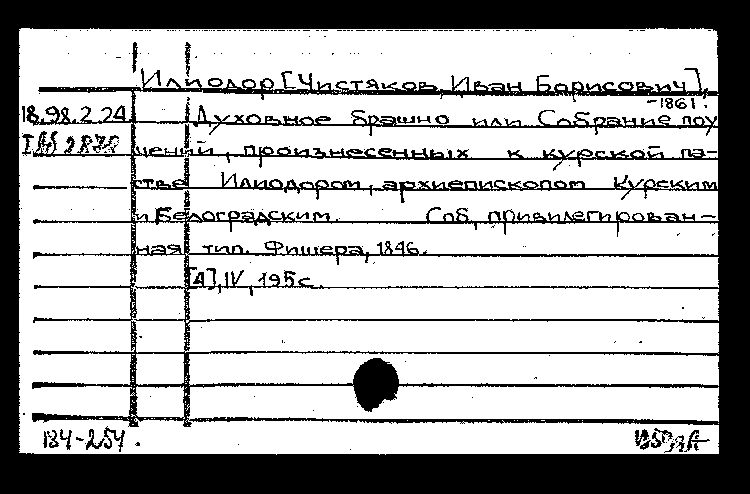 Илиодор [Чистяков, Иван Борисович],
-1861.
18.98.2.24 Духовное брашно или Собрание поу
чений, произнесенных к курской па-
стве Илиодором, архиепископом Курским
и Белоградским. Спб, привилегирован-
ная тип. Фишера, 1846.
[4], IV, 195 с.
184-254.